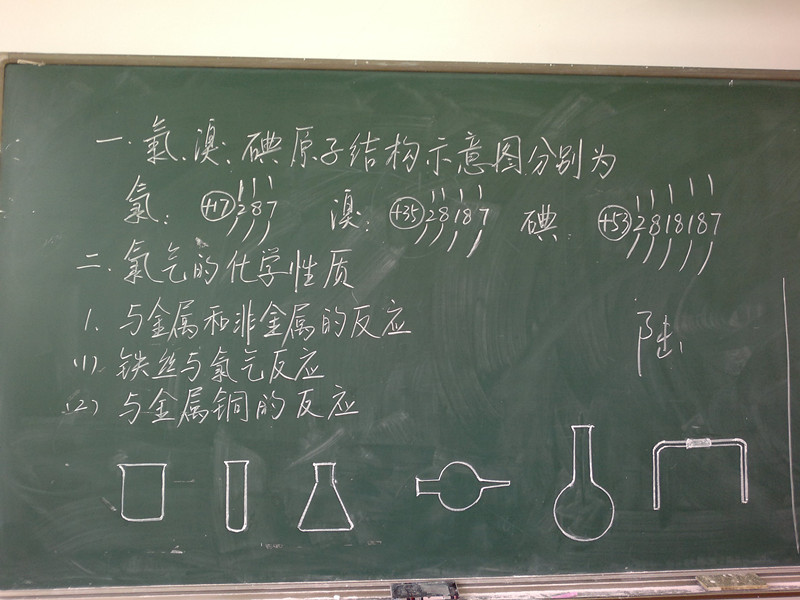 一.氯、溴、碘原子结构示意图分别为
氯: +17 2 8 7 溴: +35 2 8 18 7 碘: +53 2 8 18 18 7
二.氯气的化学性质
1.与金属和非金属的反应
(1) 铁丝与氯气反应
(2) 与金属铜的反应
陆